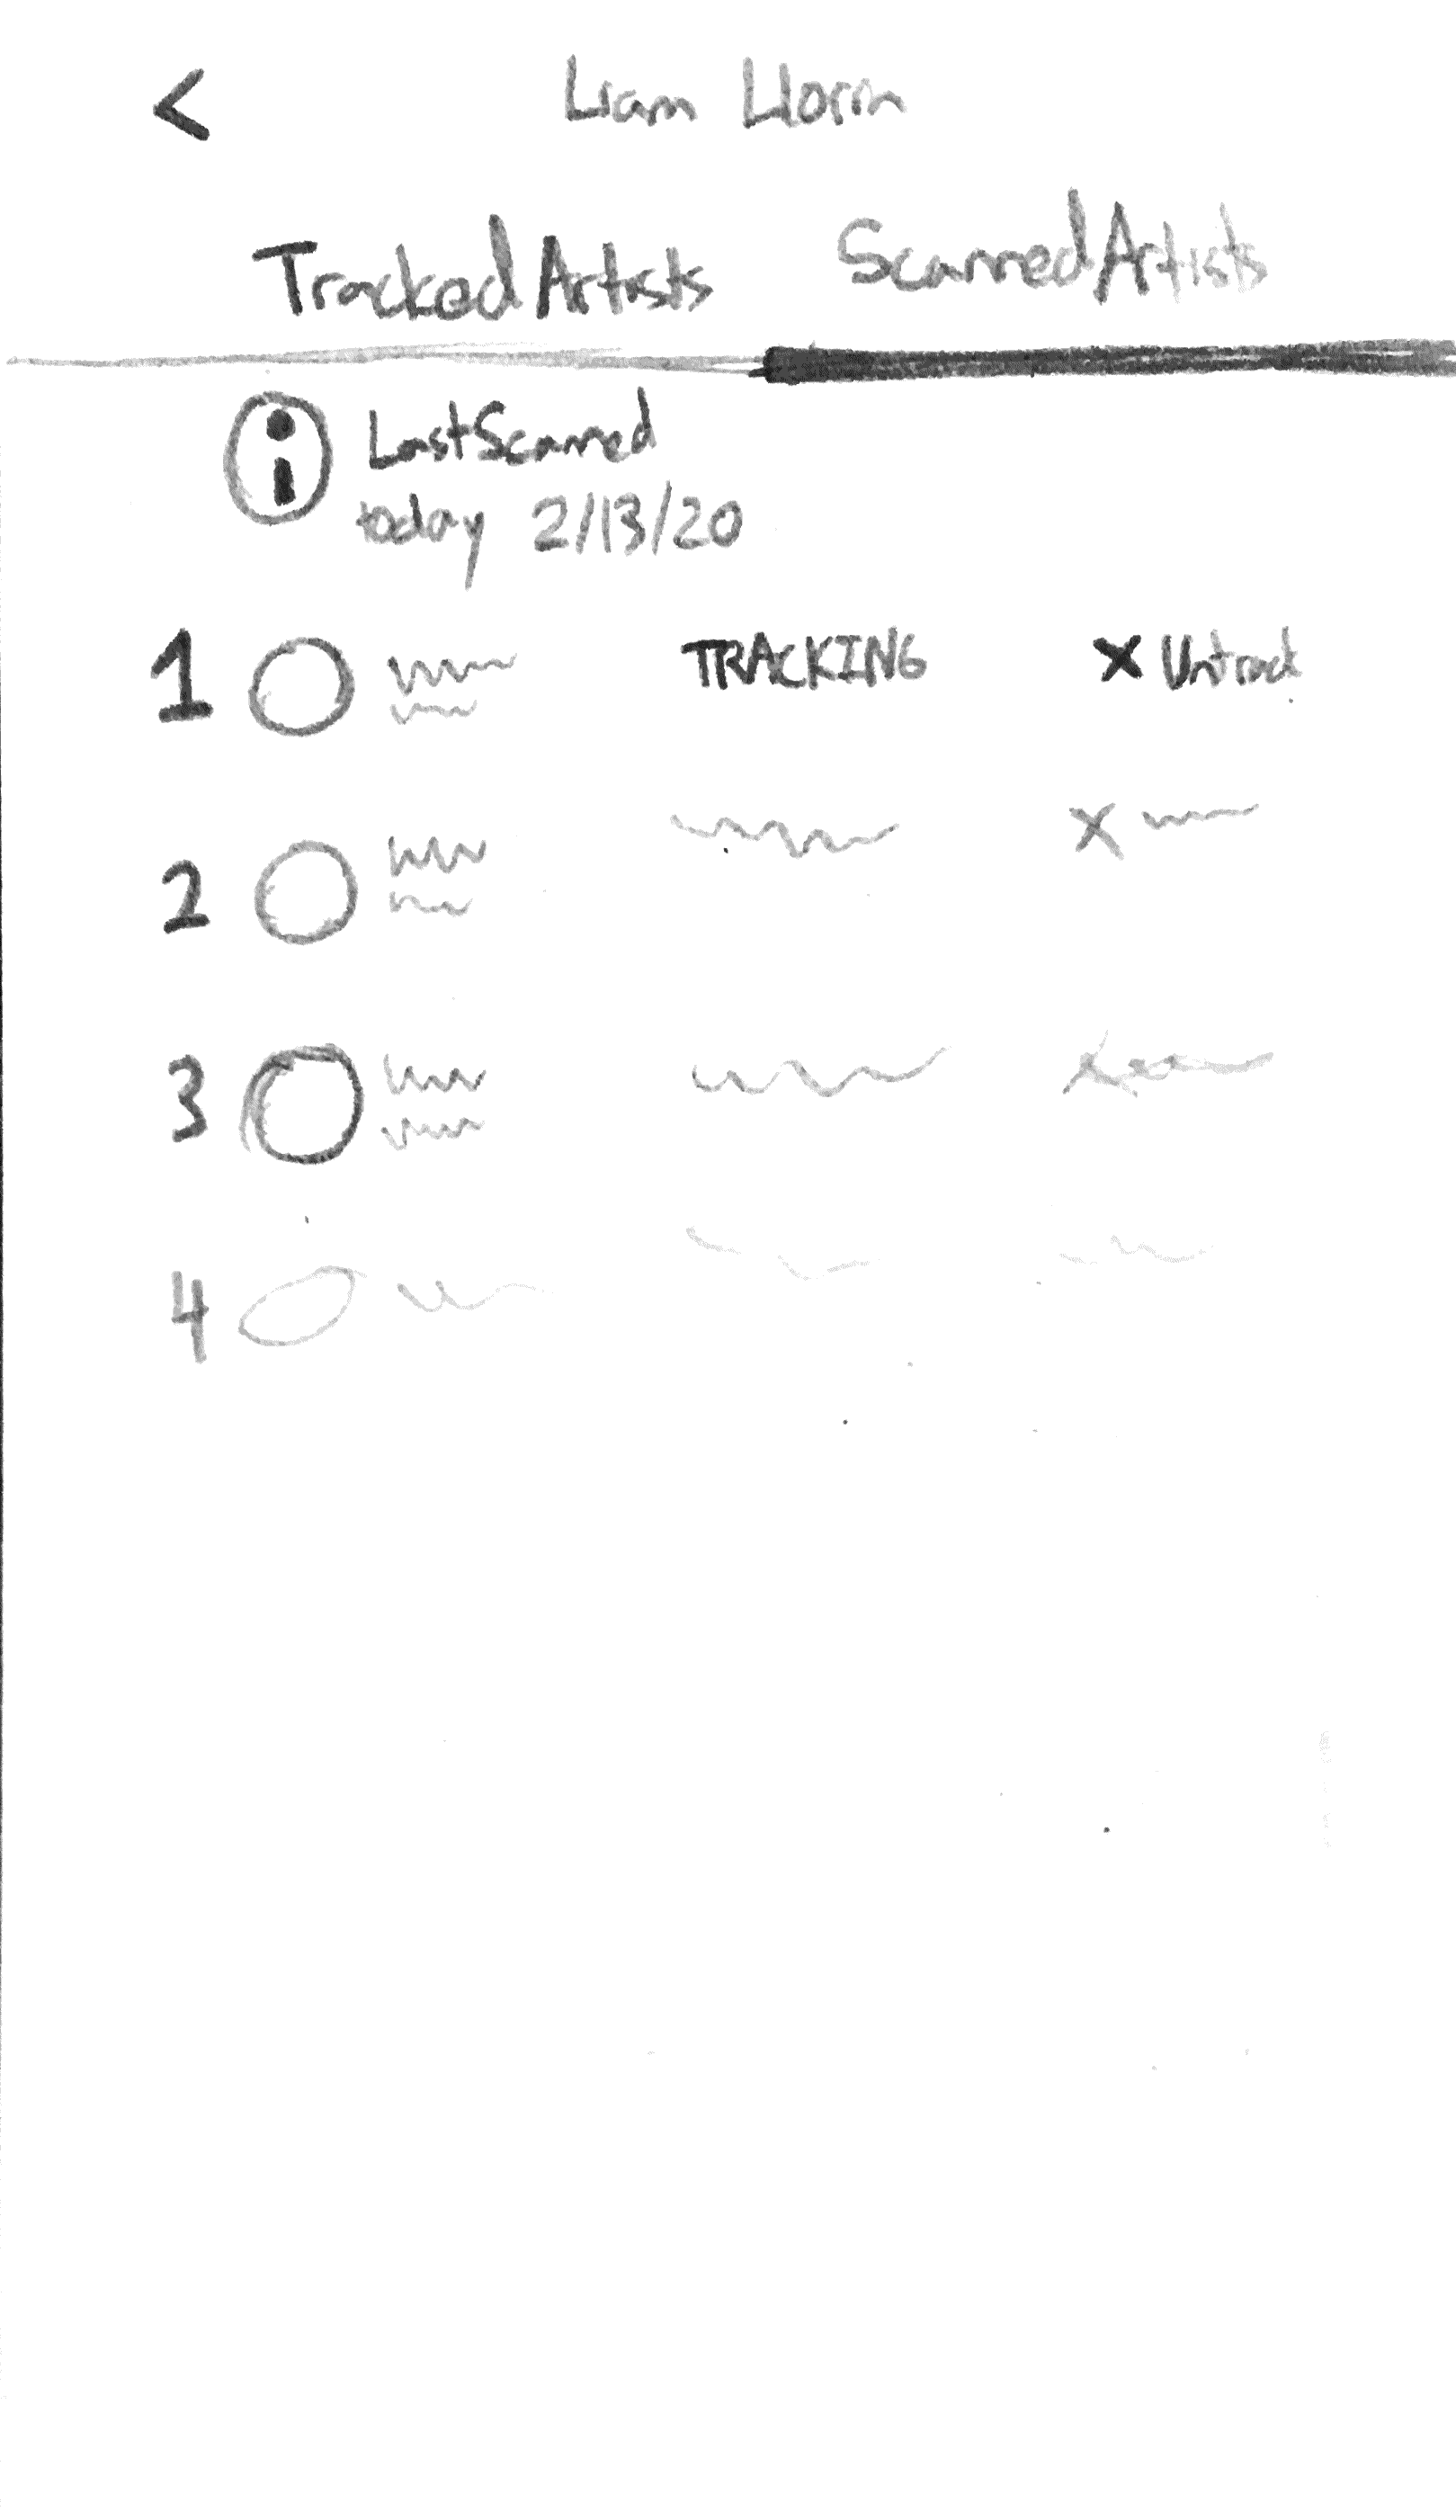 <
Liam Llorin
Tracked Artists Scanned Artists
i Last Scanned
today 2/13/20
1 TRACKING X Untrack
2 X
3
4